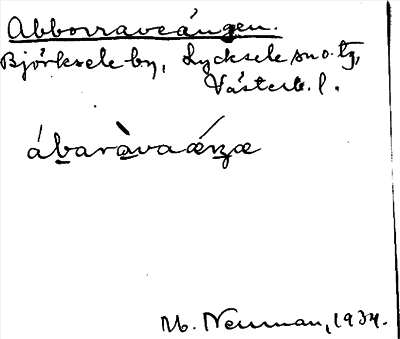 Abborraveången.
Björksele by, Lycksele sn o. tg,
Västerb. l.
ábaràvaǽŋæ
M. Neuman, 1934.